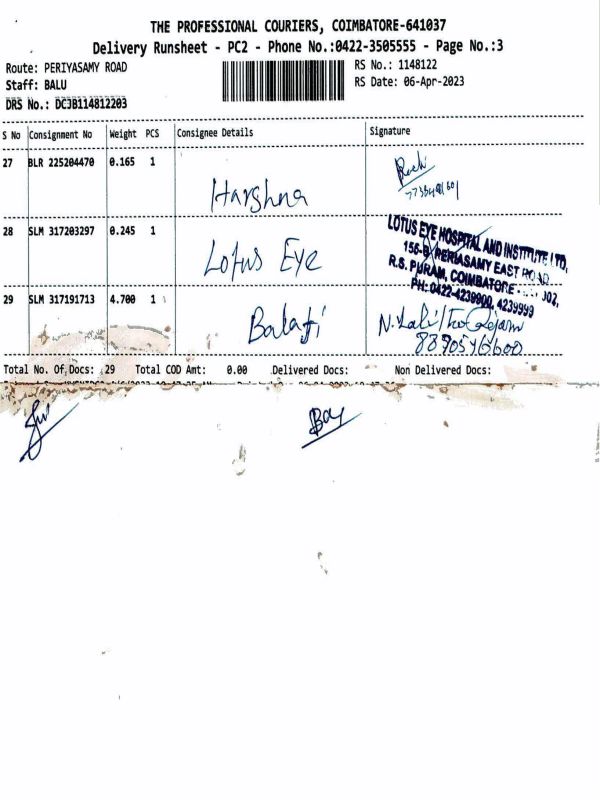 THE PROFESSIONAL COURIERS, COIMBATORE-641037
Delivery Runsheet - PC2 - Phone No.:0422-3505555 - Page No.:3
Route: PERIYASAMY ROAD RS No.: 1148122
Staff: BALU RS Date: 06-Apr-2023
DRS No.: DC3B114812203
S No Consignment No Weight PCS Consignee Details Signature
27 BLR 225204470 0.165 1
Harshna
28 SLM 317203297 0.245 1
Lotus Eye
LOTUS EYE HOSPITAL AND INSTITUTE LTD,
156-B, PERIASAMY EAST ROAD
R.S. PURAM, COIMBATORE
PH: 0422-4239900, 4239999
29 SLM 317191713 4.700 1
Balaji
Total No. Of Docs: 29 Total COD Amt: 0.00 Delivered Docs: Non Delivered Docs: